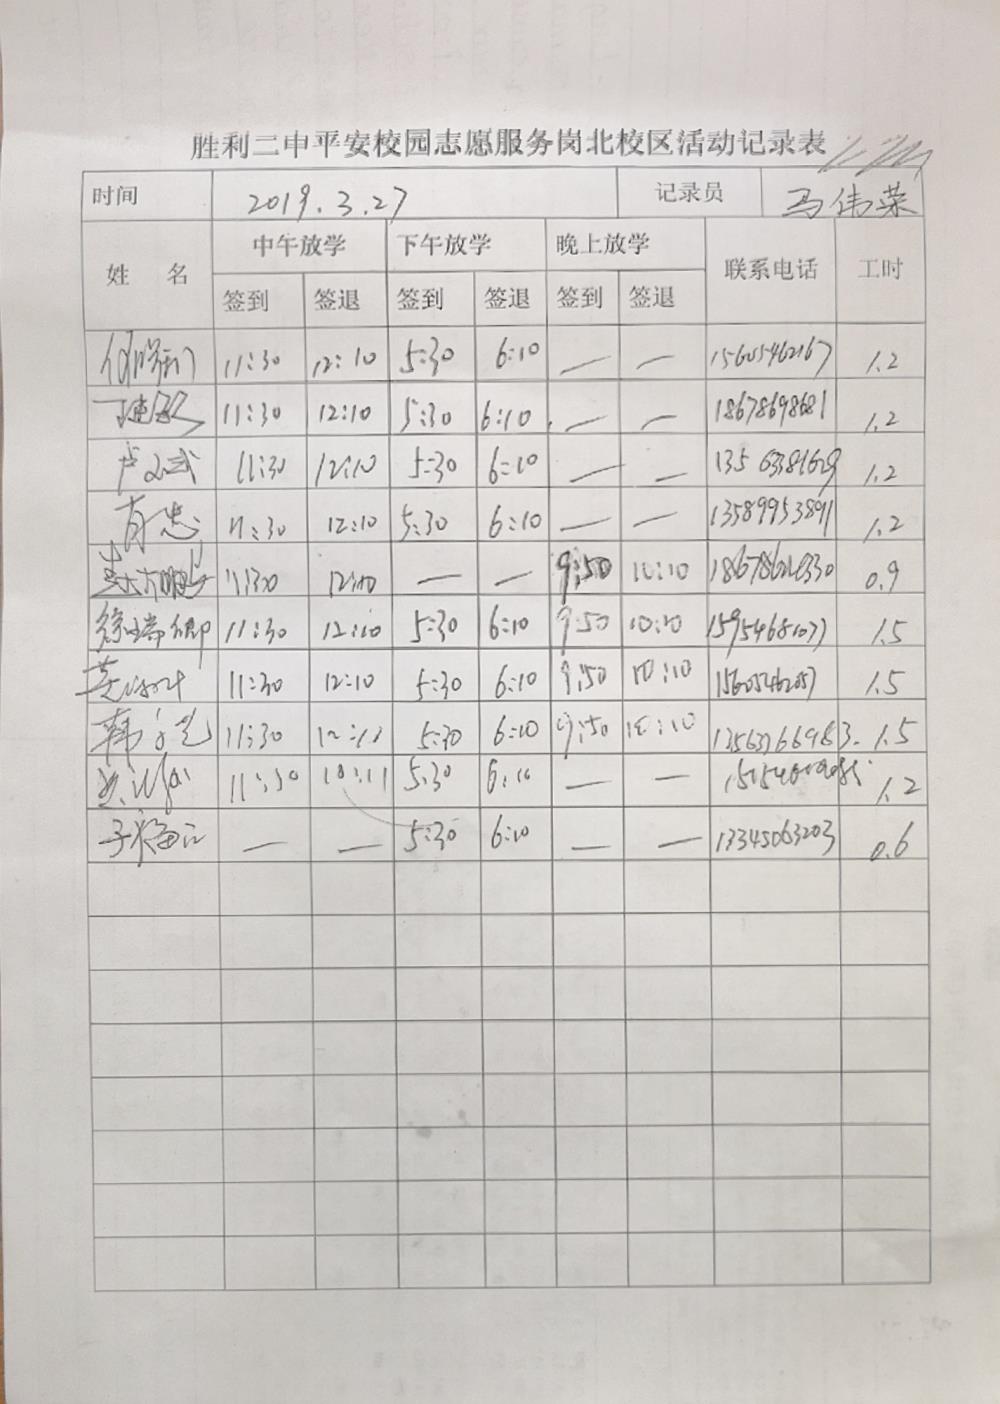 胜利二中平安校园志愿服务岗北校区活动记录表
时间 2019.3.27 记录员 马伟荣
姓 名 中午放学 下午放学 晚上放学 联系电话 工时
签到 签退 签到 签退 签到 签退
11:30 12:10 5:30 6:10 — — 15605462167 1.2
11:30 12:10 5:30 6:10 — — 18678698681 1.2
11:30 12:10 5:30 6:10 — — 13563381629 1.2
肖忠 11:30 12:10 5:30 6:10 — — 13589953891 1.2
11:30 12:10 — — 9:50 10:10 0.9
徐瑞卿 11:30 12:10 5:30 6:10 9:50 10:10 15954681077 1.5
11:30 12:10 5:30 6:10 9:50 10:10 15605462057 1.5
11:30 12:10 5:30 6:10 9:50 10:10 1.5
11:30 5:30 6:10 — — 1.2
— — 5:30 6:10 — — 13345063203 0.6